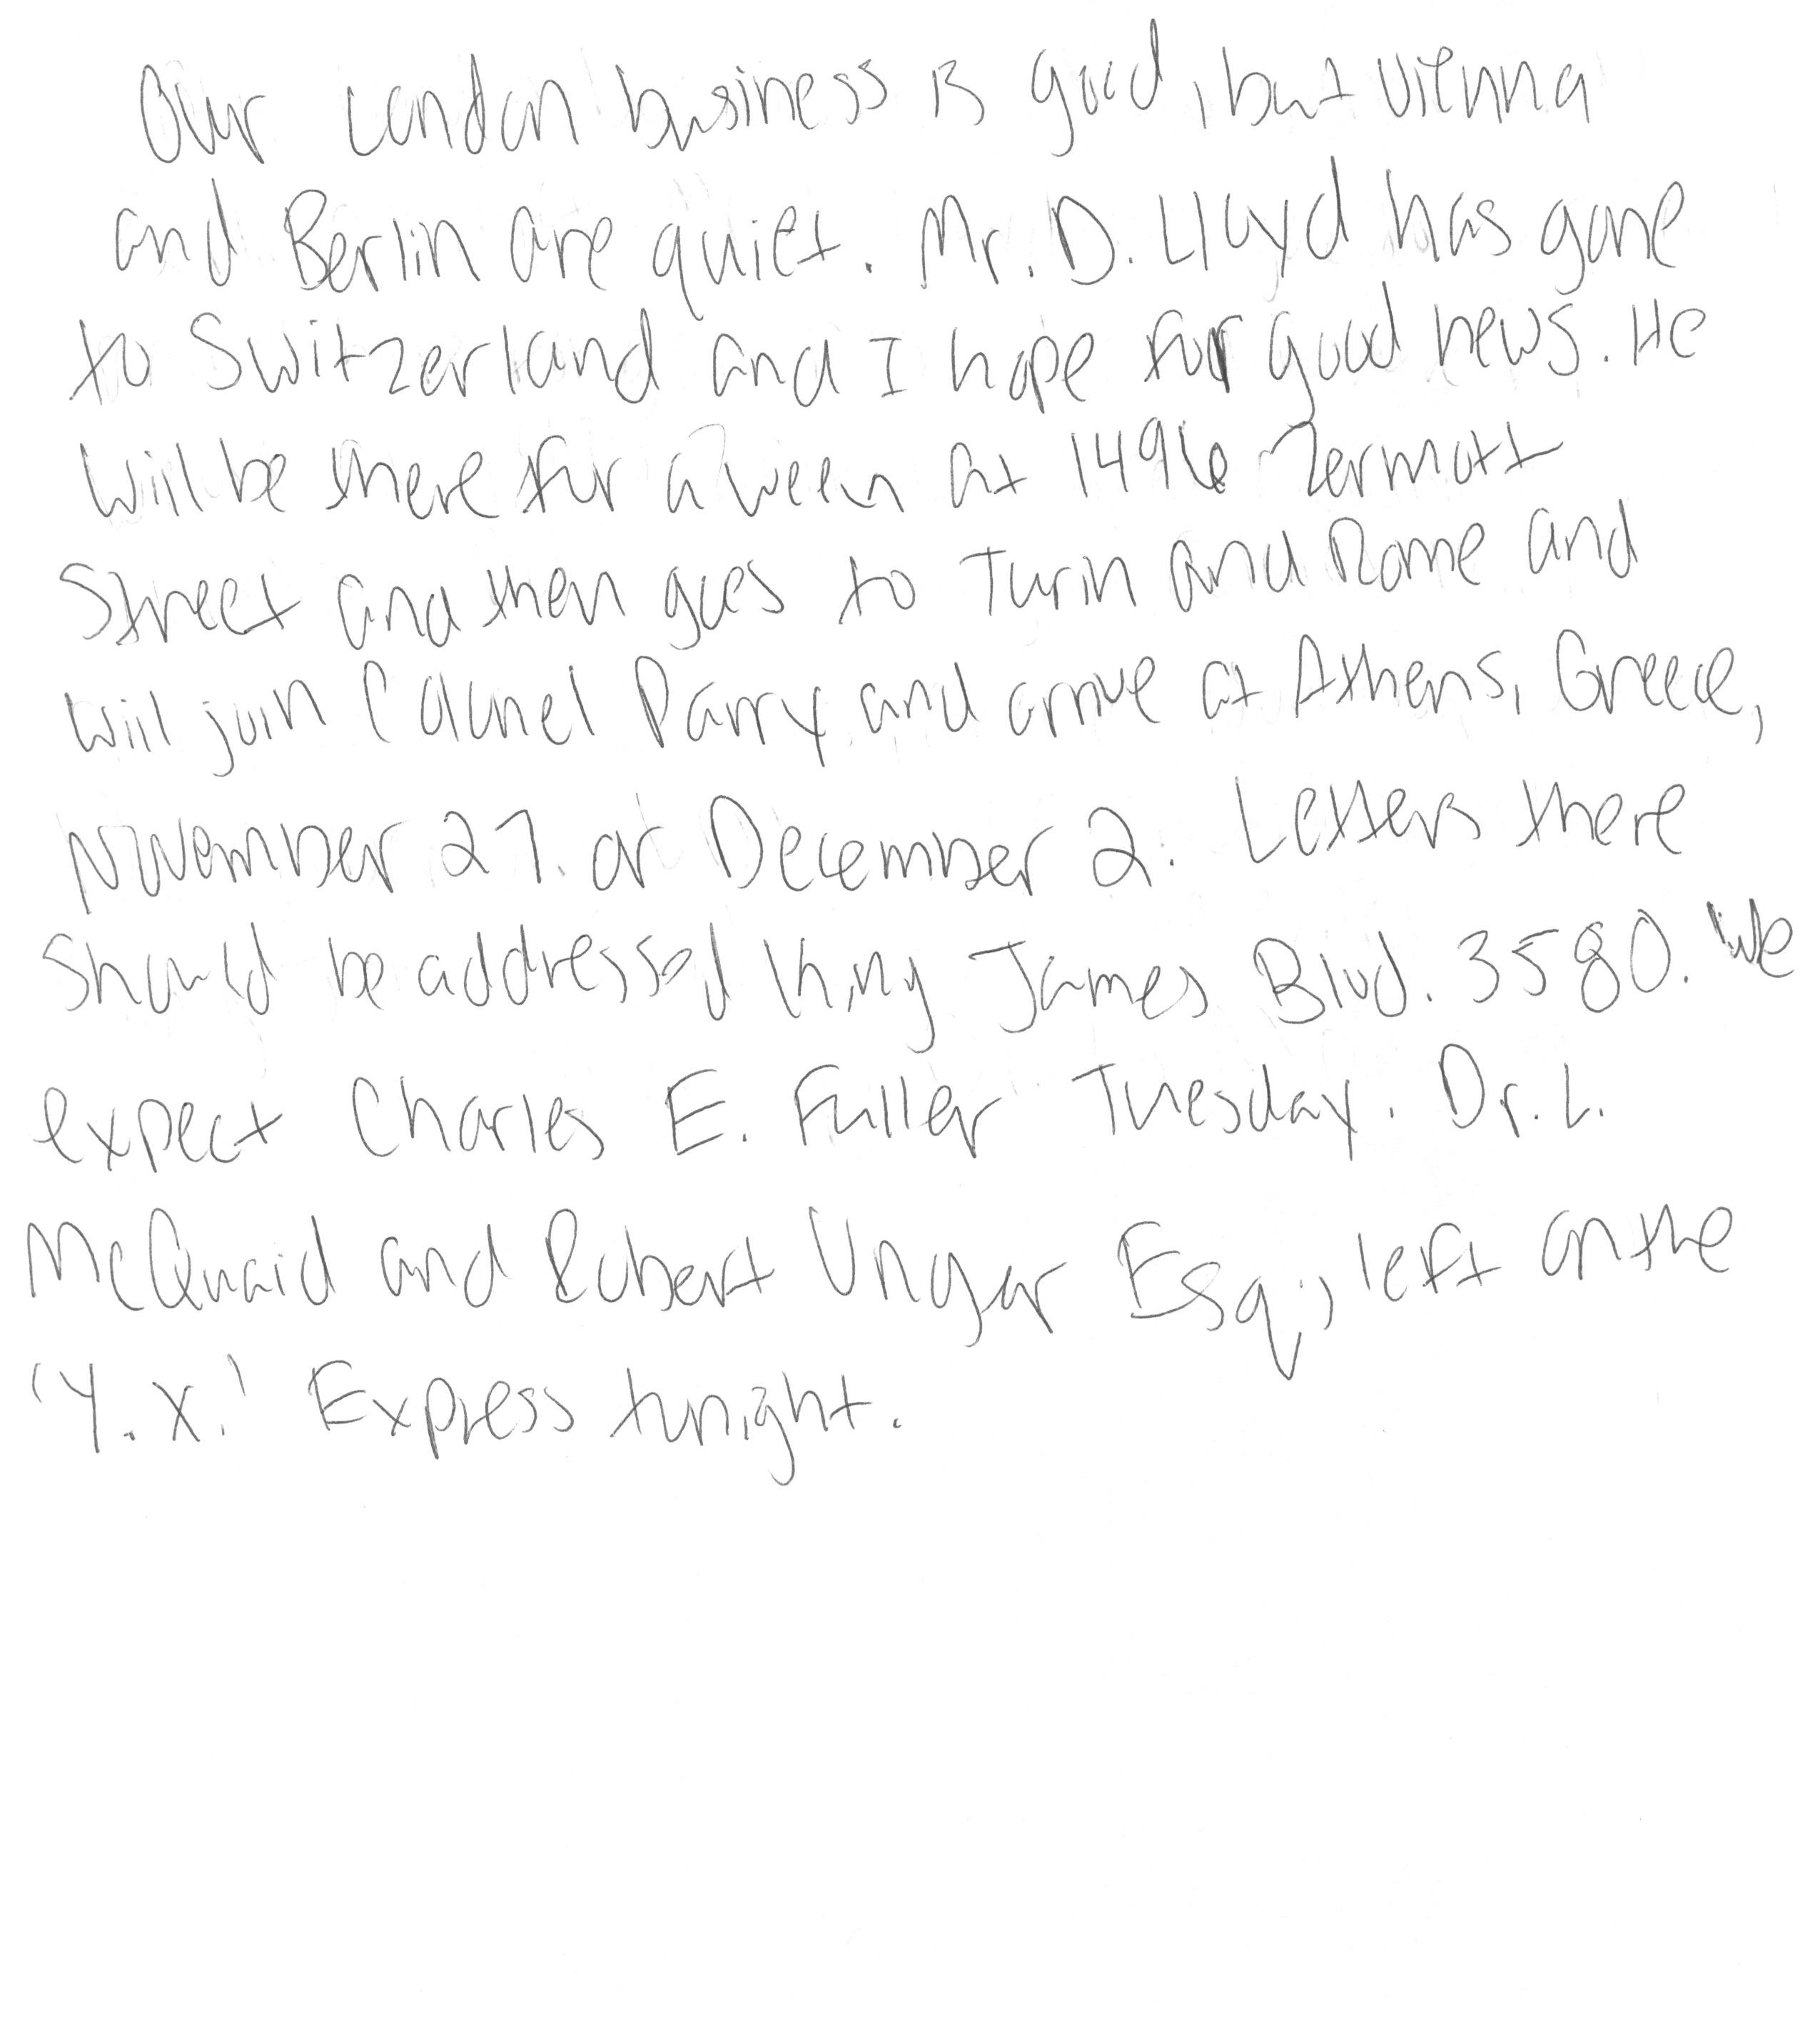 Our London business is good, but Vienna
and Berlin are quiet. Mr. D. Lloyd has gone
to Switzerland and I hope for good news. He
will be there for a week at 1496 Zermott
Street and then goes to Turin and Rome and
will join Colonel Parry and arrive at Athens, Greece,
November 27. or December 2. Letters there
should be addressed King James Blvd. 3580. We
expect Charles E. Fuller Tuesday. Dr. L.
McQuaid and Robert Ungar Esq., left on the
'Y.X.' Express tonight.